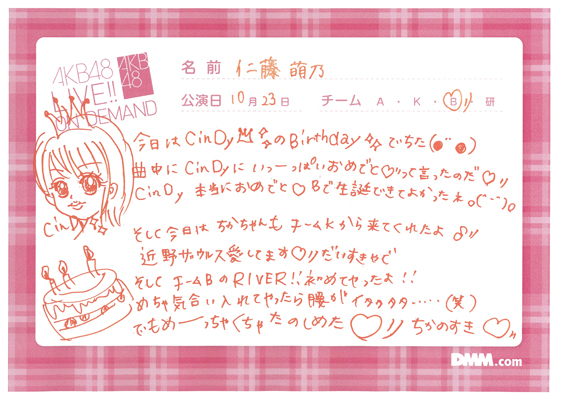 AKB48
LIVE!!
ON DEMAND
AKB
48
名前 仁藤 萌乃
公演日 10月23日 チーム A・K・B・研
今日はCinDyのBirthdayでちた(●¨●)
曲中にCinDyにいっーっぱいおめでと♡って言ったのだ♡
CinDy 本当におめでと♡Bで生誕できてよかったね。(˘ ˘)。
CinDy
そして今日はちかちゃんもチームKから来てくれたよ
近野ザウルス愛してます♡だいすきやで
そしてチームBのRIVER!!初めてやったよ!!
めちゃ気合い入れてやったら腰がイタタタタ……(笑)
でもめーっちゃくちゃたのしめた♡ ちかのすき♡
DMM.com